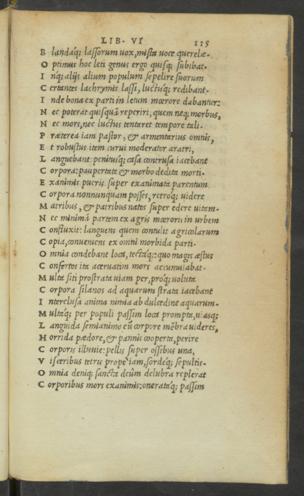 LIB. VI 125
B landaq; lassorum uox, mista uoce querelæ.
O ptimus hoc leti genus ergo quisq; subibat.
I nq; alijs alium populum sepelire suorum
C ertantes lachrymis lassi, luctuq; redibant.
I nde bona ex parti in letum mœrore dabantur:
N ec poterat quisquã reperiri, quem neq; morbus,
N ec mors, nec luctus tentaret tempore tali.
P ræterea iam pastor, & armentarius omnis,
E t robustus item curui moderator aratri,
L anguebant: penitusq; casa contrusa iacebant
C orpora: paupertate & morbo dedita morti.
E xanimis pueris super exanimata parentum
C orpora nonnunquam posses, retroq; uidere
M atribus, & patribus natos super edere uitam.
N ec minimã partem ex agris mœroris in urbem
C onfluxit: languens quem contulit agricolarum
C opia, conueniens ex omni morbida parti.
O mnia condebant loca, tectaq; quo magis æstus
C onfertos ita aceruatim mors accumulabat.
M ulta siti prostrata uiam per, proq; uoluta
C orpora silanos ad aquarum strata iacebant
I nterclusa anima nimia ab dulcedine aquarum.
M ultaq; per populi passim loca prompta, uiasq;
L anguida semianimo cũ corpore mẽbra uideres,
H orrida pædore, & pannis cooperta, perire
C orporis illuuie: pellis super ossibus una,
V isceribus tetris prope iam, sordeq; sepultis.
O mnia deniq; sancta deũm delubra replerat
C orporibus mors exanimis: onerataq; passim